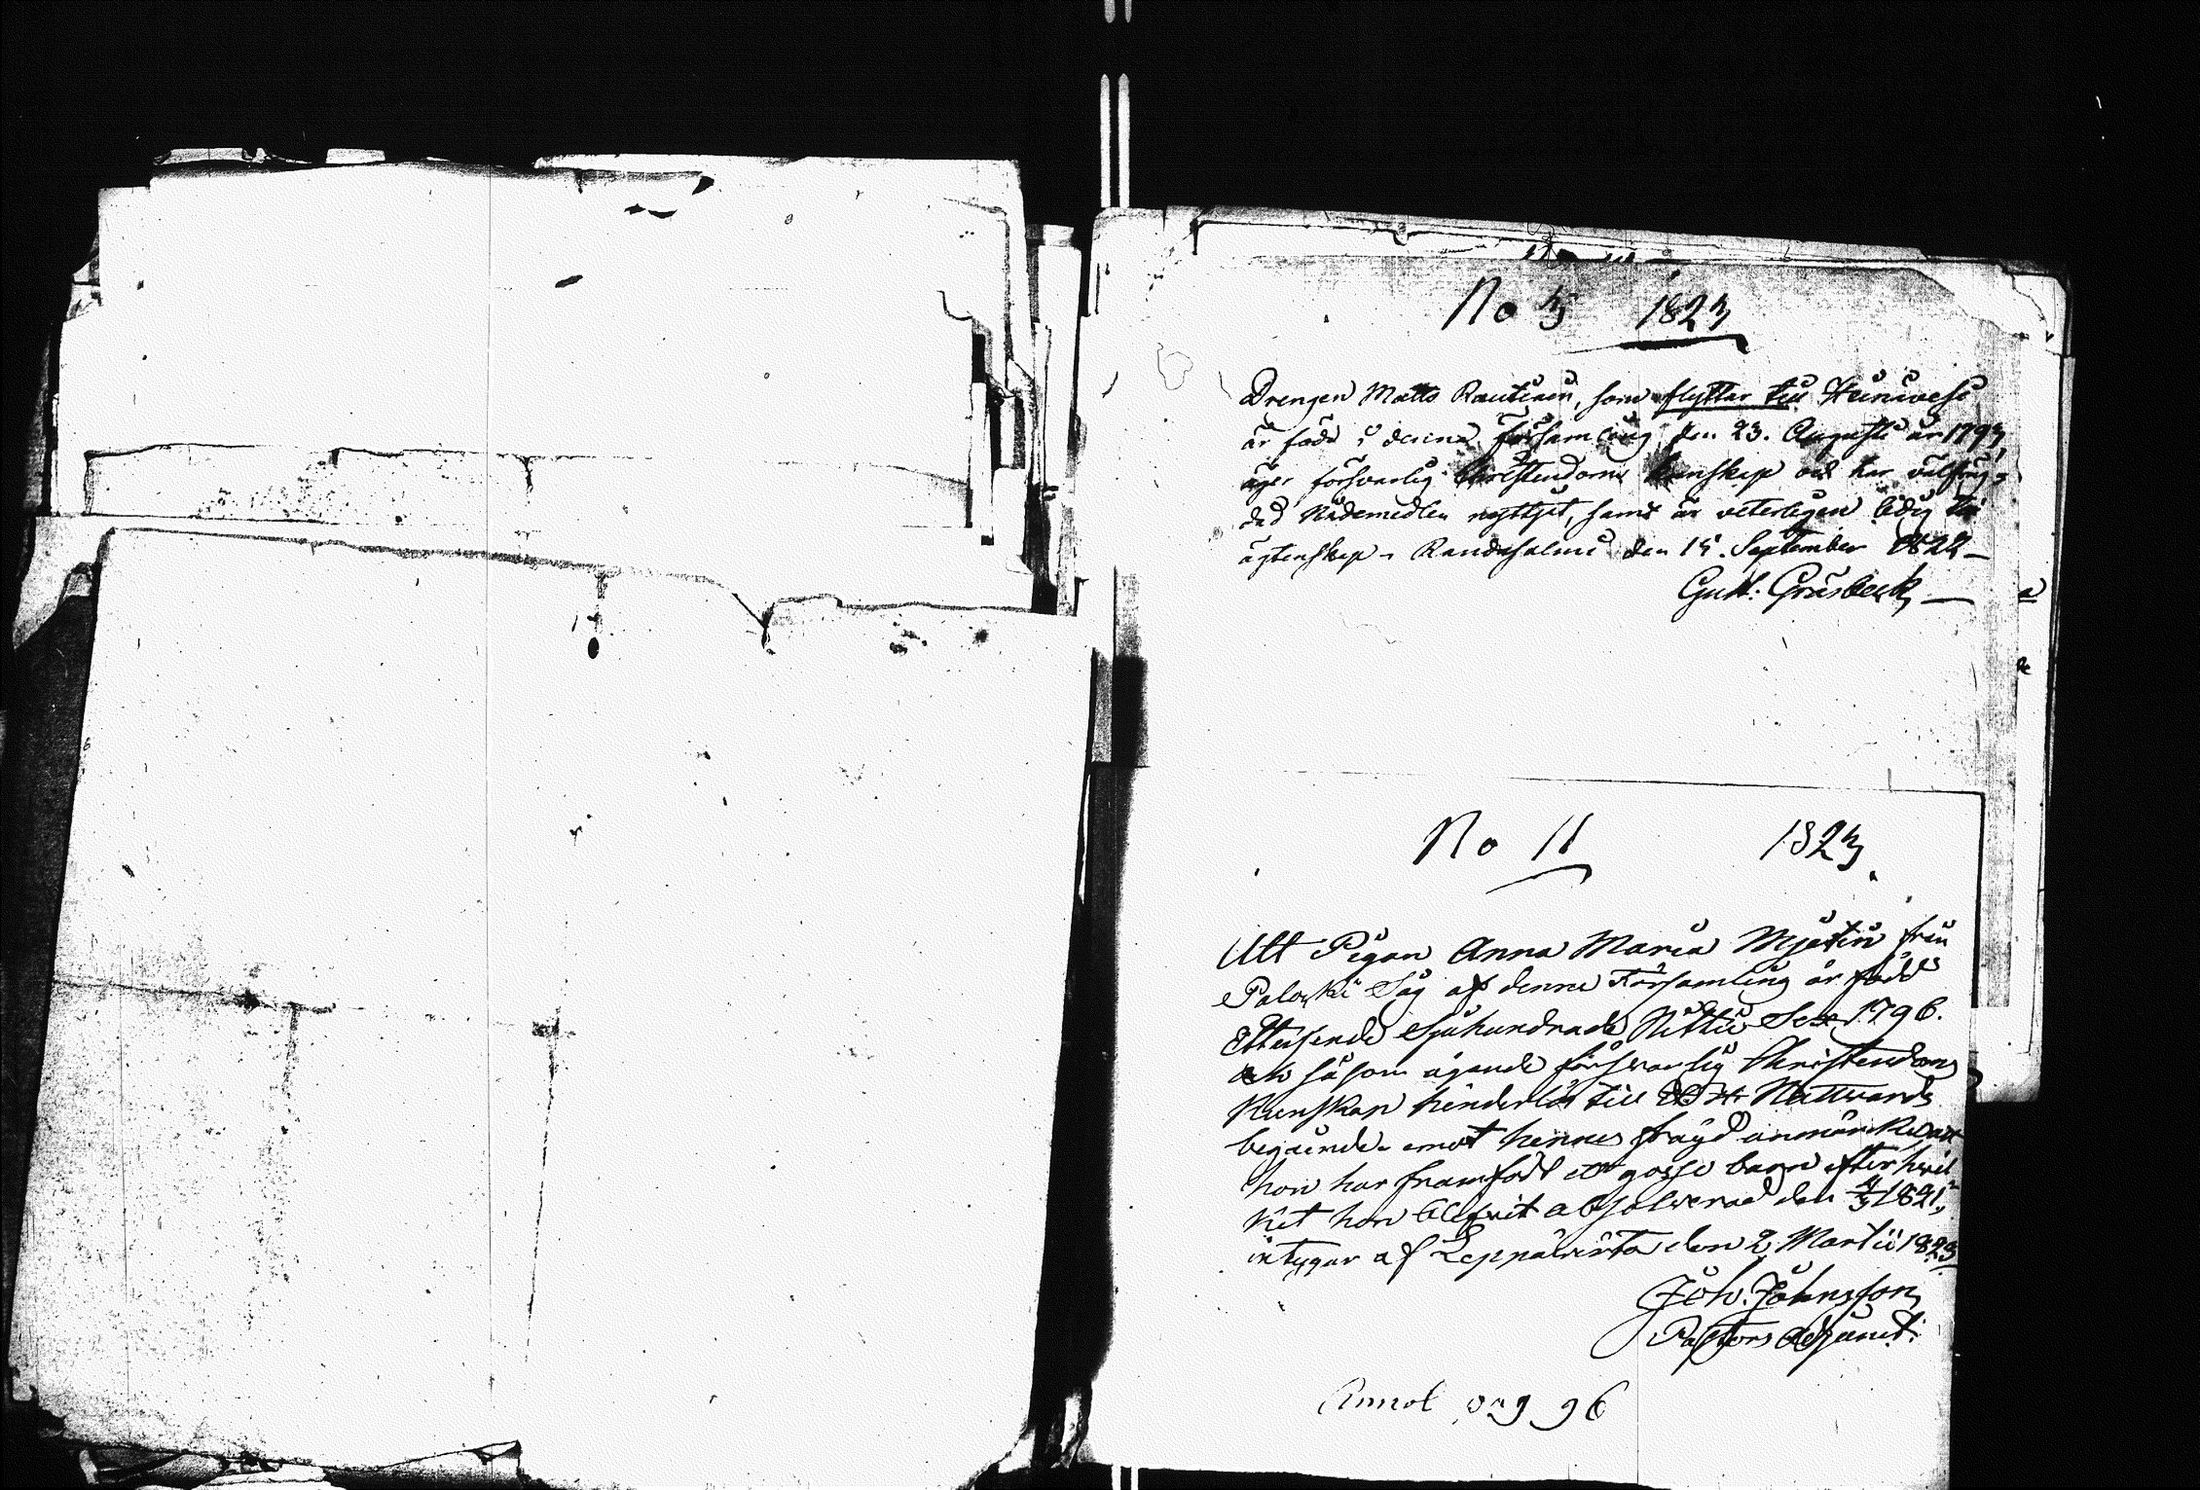 No 3 1823
Drengen Matts Rautiain, som flyttar till Heinävesi
är född i denna församling den 23. Augusti år 1793,
äger försvarlig Christendoms kunskap och har välfräg-
dad Nådemedlen nyttjat, samt är veterligen ledig till
ägtenskap. Randasalmi den 15. September 1822 —
Gust: Gräsbeck —
No 11 1823
Att Pigan Anna Maria Mjetin från
Palaski Såg af denne Församling är född
Ettusende Sjuhundrade Nittio Sex 1796.
och såsom ägande försvarlig Christendoms
Kunskap hinderlös till H. H. Nattvards
begående. emot hennes frägd anmärkes att
hon har framfödt ett gosse barn efter hvil
ket hon blifvit absolverad den 4/3 1821,
intygar af Leppävirta den 2 Martii 1823
Joh. Johnsson
Pastors Adjunct.
Annot pag 96